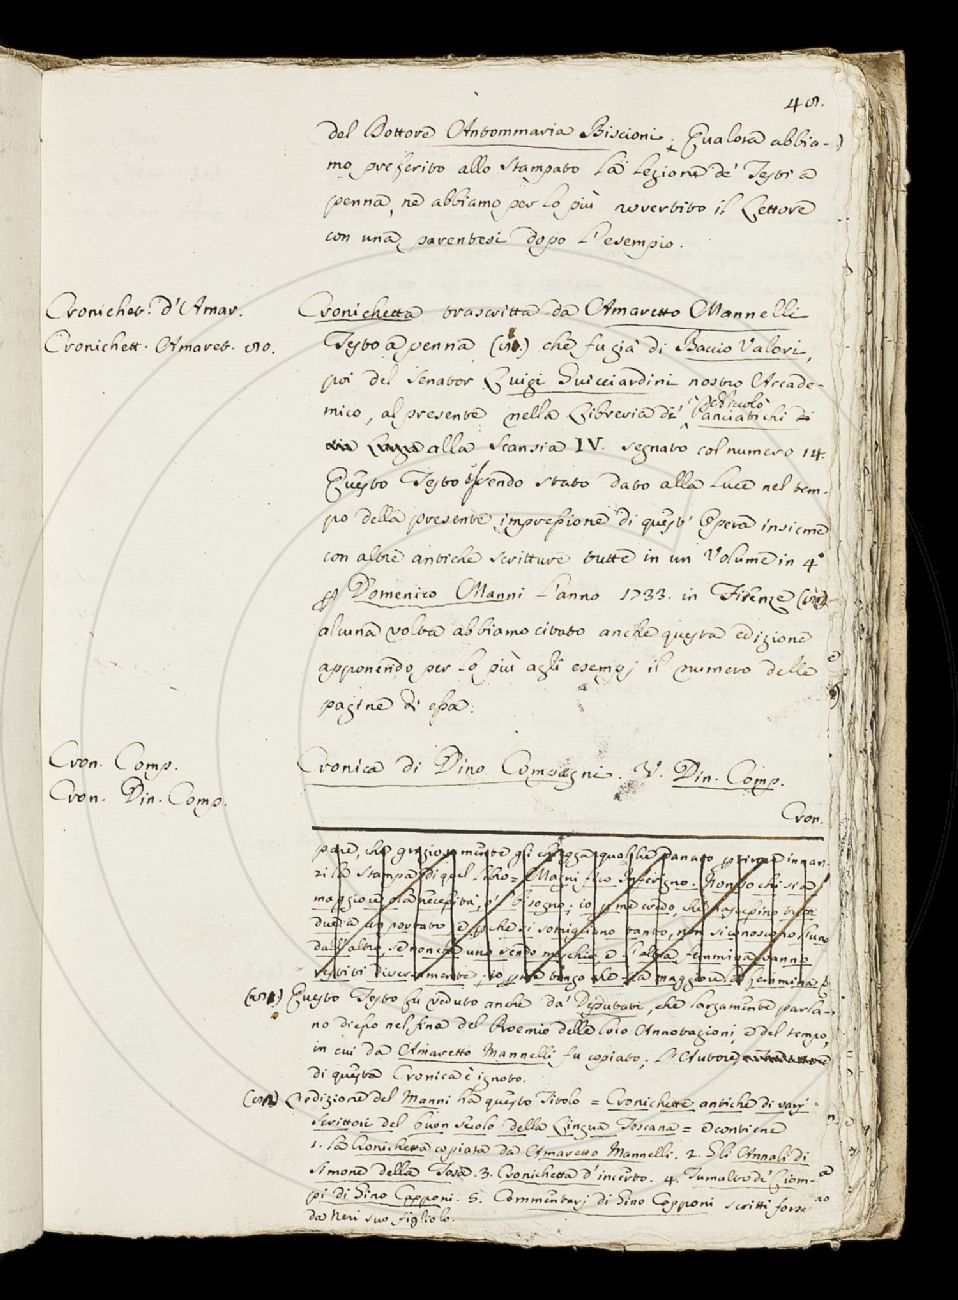 del Dottore Antommaria Biscioni. Qualora abbia-
mo preferito allo Stampato la lezione de' Testi a
penna, ne abbiamo per lo più avvertito il Lettore
con una parentesi dopo l'esempio.
Cronichet. d'Amar.
Cronichett. Amaret. 90.
Cronichetta trascritta da Amaretto Mannelli
Testo a penna che fu già di Baccio Valori,
poi del Senator Luigi Guicciardini nostro Accade-
mico, al presente nella Libreria di Niccolò Panciatichi
alla Scansia IV. segnato col numero 14.
Questo Testo essendo stato dato alla luce nel tem-
po della presente impressione di quest'Opera insieme
con altre antiche scritture tutte in un Volume in 4°
Domenico Manni l'anno 1733. in Firenze
alcuna volta abbiamo citato anche questa edizione
apponendo per lo più agli esempj il numero delle
pagine di essa.
Cron. Comp.
Cron. Din. Comp.
Cronica di Dino Compagni. V. Din. Comp.
Cron.
pare, che graziosamente gli qualche innan-
zi la Stampa di quel libro =
maggiore bisogno; io credo, che
che si somigliano tanto, non si conoscono l'uno
dall'altro, se non che uno e l'altra femmina vanno
vestiti diversamente; io maggiore la femmina
Questo Testo fu veduto anche da' Deputati, che largamente parla-
no d'esso nel fine del Proemio delle loro Annotazioni, e del tempo,
in cui da Amaretto Mannelli fu copiato. L'Autore
di questa Cronica è ignoto.
L'edizione del Manni ha questo Titolo = Cronichette antiche di varj
Scrittori del buon secolo della Lingua Toscana = e contiene
1. La Cronichetta copiata da Amaretto Mannelli. 2. Gli Annali di
Simone della Tosa. 3. Cronichetta d'incerto. 4. Tumulto de' Ciom-
pi di Gino Capponi. 5. Commentarj di Gino Capponi scritti forse
da Neri suo figliolo.